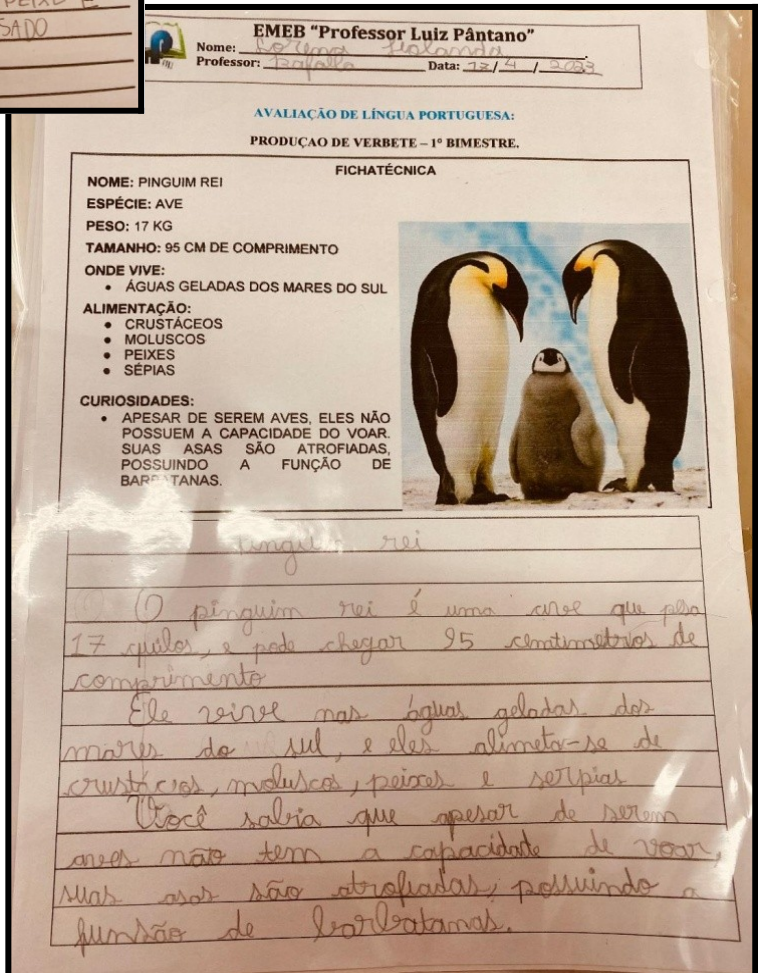 PEIXE E
SADO
EMEB “Professor Luiz Pântano”
Nome: Lorena Holanda
Professor: Rafaella Data: 12/4/2023
AVALIAÇÃO DE LÍNGUA PORTUGUESA:
PRODUÇAO DE VERBETE – 1º BIMESTRE.
FICHATÉCNICA
NOME: PINGUIM REI
ESPÉCIE: AVE
PESO: 17 KG
TAMANHO: 95 CM DE COMPRIMENTO
ONDE VIVE:
• ÁGUAS GELADAS DOS MARES DO SUL
ALIMENTAÇÃO:
• CRUSTÁCEOS
• MOLUSCOS
• PEIXES
• SÉPIAS
CURIOSIDADES:
• APESAR DE SEREM AVES, ELES NÃO
POSSUEM A CAPACIDADE DO VOAR.
SUAS ASAS SÃO ATROFIADAS,
POSSUINDO A FUNÇÃO DE
BARBATANAS.
pinguim rei
O pinguim rei é uma ave que pesa
17 quilos, e pode chegar 95 centimetros de
comprimento
Ele vive nas águas geladas dos
mares do sul, e eles alimeta-se de
crustácios, moluscos, peixes e serpias
Você sabia que apesar de serem
aves não tem a capacidade de voar,
suas asas são atrofiadas, possuindo a
funsão de barbatanas.